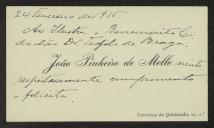 24 Fevereiro de 1916
Ao Illustre e Benemerito Ci
dadão Dr. Teofilo de Braga.
João Pinheiro de Mello muito
respeitosamente cumprimenta
e felicita
Travessa da Queimada, 27, 2.º